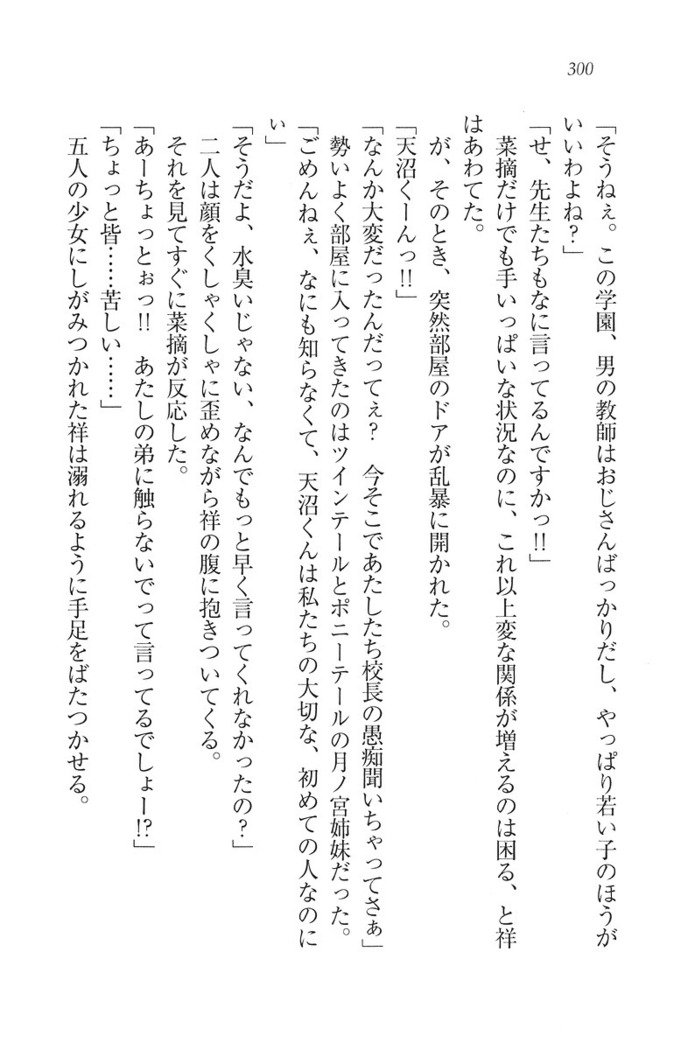 300
「そうねぇ。この学園、男の教師はおじさんばっかりだし、やっぱり若い子のほうが
いいわよね？」
「せ、先生たちもなに言ってるんですかっ!!」
菜摘だけでも手いっぱいな状況なのに、これ以上変な関係が増えるのは困る、と祥
はあわてた。
が、そのとき、突然部屋のドアが乱暴に開かれた。
「天沼くーんっ!!」
「なんか大変だったんだってぇ？　今そこであたしたち校長の愚痴聞いちゃってさぁ」
勢いよく部屋に入ってきたのはツインテールとポニーテールの月ノ宮姉妹だった。
「ごめんねぇ、なにも知らなくて、天沼くんは私たちの大切な、初めての人なのに
ぃ」
「そうだよ、水臭いじゃない、なんでもっと早く言ってくれなかったの？」
二人は顔をくしゃくしゃに歪めながら祥の腹に抱きついてくる。
それを見てすぐに菜摘が反応した。
「あーちょっとぉっ!!　あたしの弟に触らないでって言ってるでしょー!?」
「ちょっと皆……苦しい……」
五人の少女にしがみつかれた祥は溺れるように手足をばたつかせる。